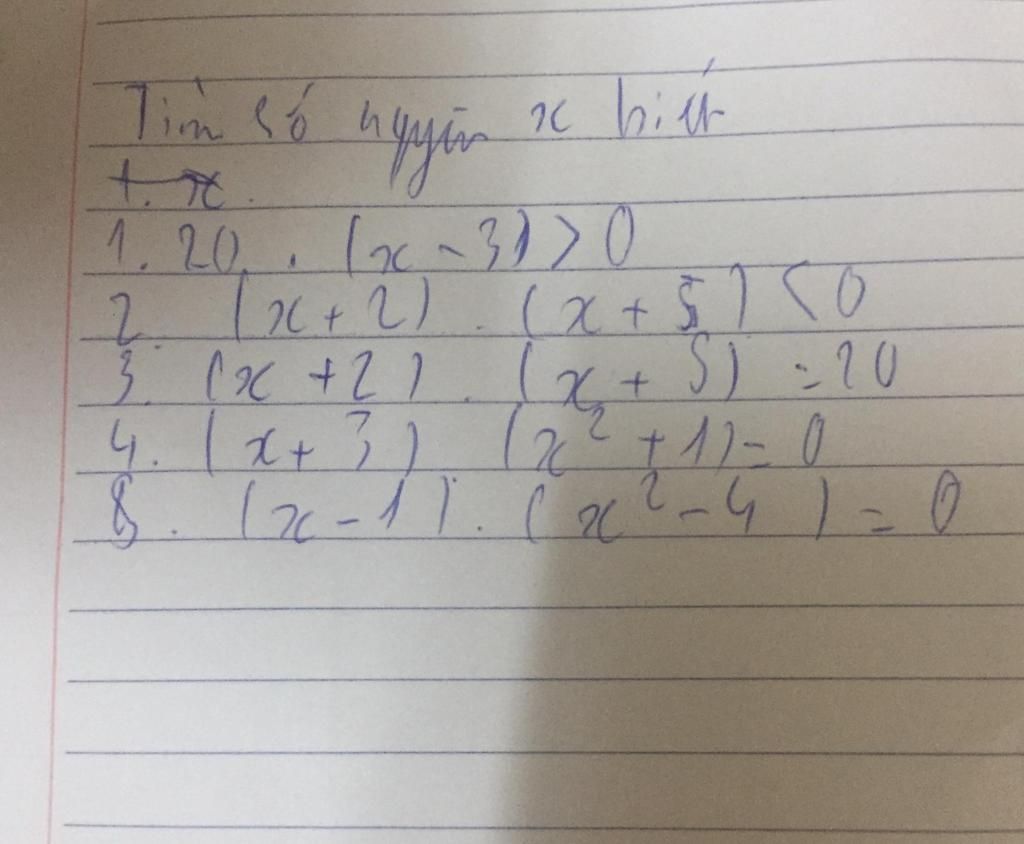 Tìm số nguyên x biết
1. x.
1. 20 . (x - 3) > 0
2. (x + 2) . (x + 5) < 0
3. (x + 2) . (x + 5) = 20
4. (x + 3) (x² + 1) = 0
5. (x - 1) . (x² - 4) = 0